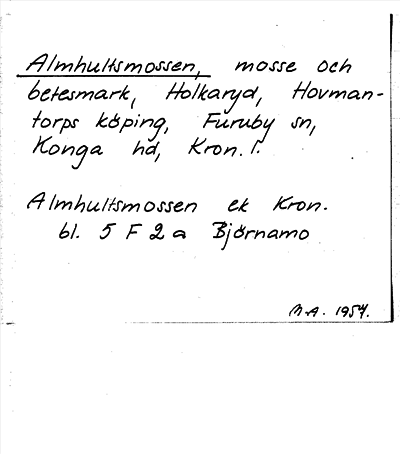 Almhultsmossen, mosse och
betesmark, Holkaryd, Hovman-
torps köping, Furuby sn,
Konga hd, Kron. l.
Almhultsmossen ek Kron.
bl. 5 F 2 a Björnamo
M.A. 1954.